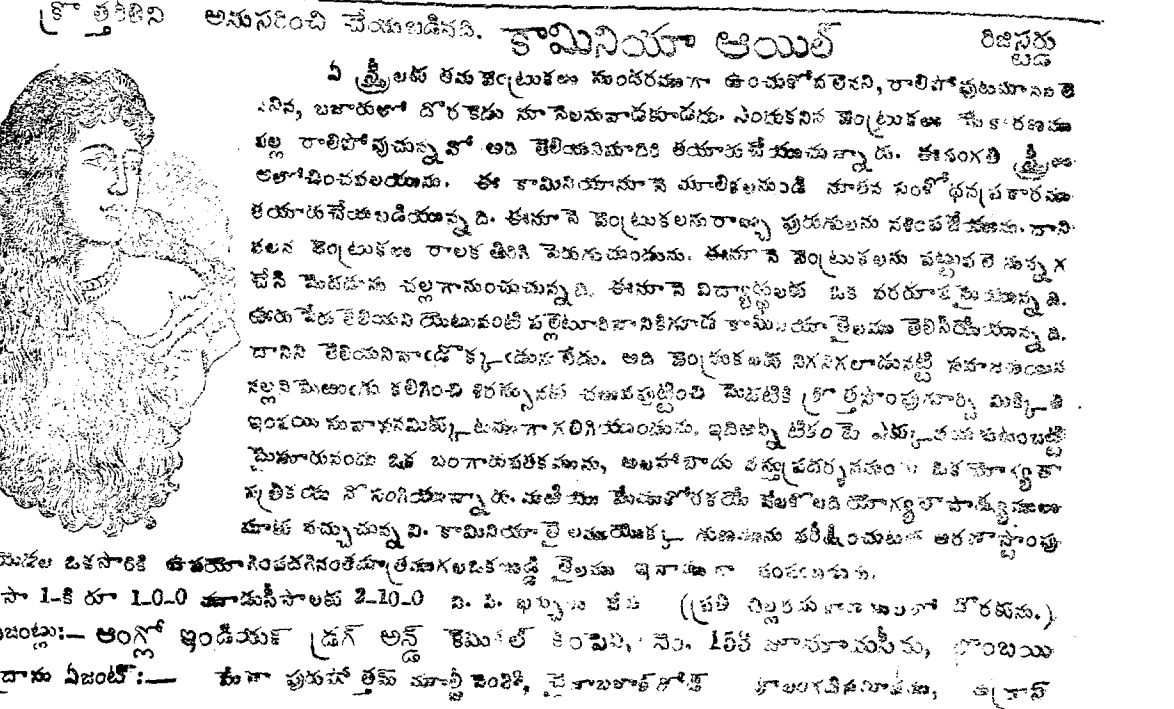 క్రొత్తరీతిని అనుసరించి చేయబడినది. కామినియా ఆయిల్ రిజిస్టర్డు
ఏ స్త్రీలకు తమ వెంట్రుకలు సుందరముగా ఉంచుకోవలెనని, రాలిపోవుటమానవలె
నని, బజారులో దొరకెడు నూనెలనువాడకూడదు. ఎందుకనిన వెంట్రుకలు యేకారణము
వల్ల రాలిపోవుచున్నవో అది తెలియనివారికి తయారుచేయుచున్నారు. ఈసంగతి స్త్రీలు
ఆలోచించవలయును. ఈ కామినియానూనె మూలికలనుండి నూతన సంశోధనప్రకారము
తయారుచేయబడియున్నది. ఈనూనె వెంట్రుకలనురాల్చు పురుగులను నశింపజేయును. దాని
వలన వెంట్రుకలు రాలక తిరిగి పెరుగుచుండును. ఈనూనె వెంట్రుకలను పట్టువలె సున్నగ
చేసి మెదడును చల్లగానుంచుచున్నది. ఈనూనె విద్యార్థులకు ఒక వరరూపమైయున్నది.
ఊరు పేరు తెలియని యెటువంటి పల్లెటూరివానికిగూడ కామినియాతైలము తెలిసియేయున్నది.
దానిని తెలియనివాఁడొక్కఁడును లేదు. అది వెంట్రుకలకు నిగనిగలాడునట్టి సహజమయిన
నల్లనిమెఱుఁగు కలిగించి శిరస్సునకు చలువపుట్టించి మెదటికి క్రొత్తసొంపుగూర్చి మిక్కిలి
ఇంపయి సువాసనమిక్కుటముగాగలిగియుండును. ఇదిఅన్నిటికంటె ఎక్కువయగుటంబట్టి
మైసూరునందు ఒక బంగారుపతకమును, అలహాబాదు వస్తుప్రదర్శనమందు ఒక యోగ్యతా
పత్రికయు నొసంగియున్నారు. మఱియు మేముకోరకయే వేలకొలది యోగ్యతాపత్రికలు
మాకు వచ్చుచున్నవి. కామినియాతైలముయొక్క గుణమును పరీక్షించుటకు అరణాస్టాంపు
ఒకసారికి ఉపయోగింపదగినంతమాత్రముగలఒకబుడ్డి తైలము ఇనాముగా పంపబడును.
సీసా 1-కి రూ 1-0-0 మూడుసీసాలకు 2-10-0 వి. పి. ఖర్చులు వేరు (ప్రతి చిల్లరదుకాణములలో దొరకును.)
ఏజంట్లు:— ఆంగ్లో ఇండియక్ డ్రగ్ అన్డ్ కెమికల్ కంపెని, నెం. 155 జూమామసీదు, బొంబయి
ఏజంట్:— పురుషోత్తమ్ మూల్జీ కంపెని,